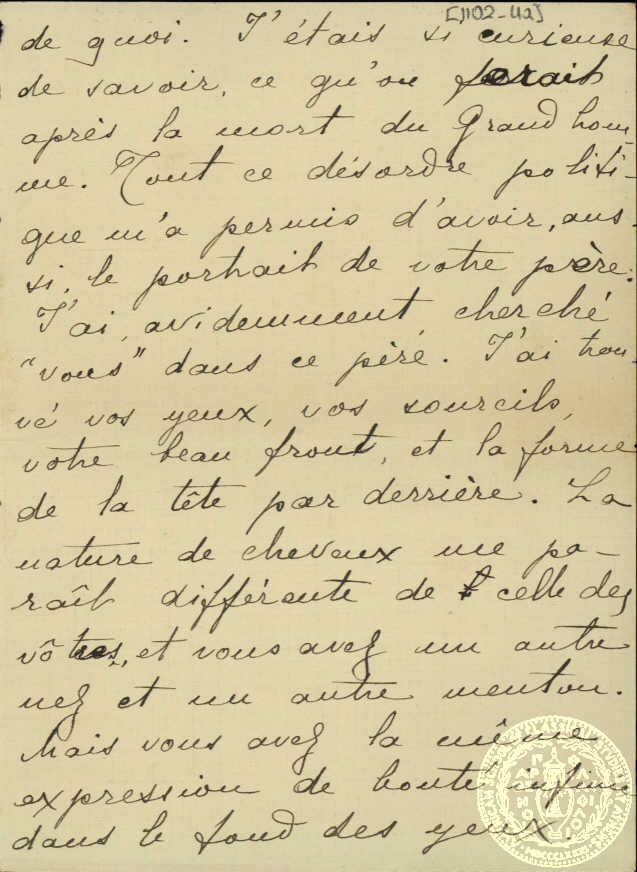 [1102-4a]
de quoi. J'étais si curieuse
de savoir, ce qu'on ferait
après la mort du Grand hom-
me. Tout ce désordre politi-
que m'a permis d'avoir, aus-
si, le portrait de votre père.
J'ai, avidemment cherché
"vous" dans ce père. J'ai trou-
vé vos yeux, vos sourcils,
votre beau front, et la forme
de la tête par derrière. La
nature de chevaux me pa-
raît différente de celle des
vôtres, et vous avez un autre
nez et un autre menton.
Mais vous avez la même
expression de bonté infinie
dans le fond des yeux.